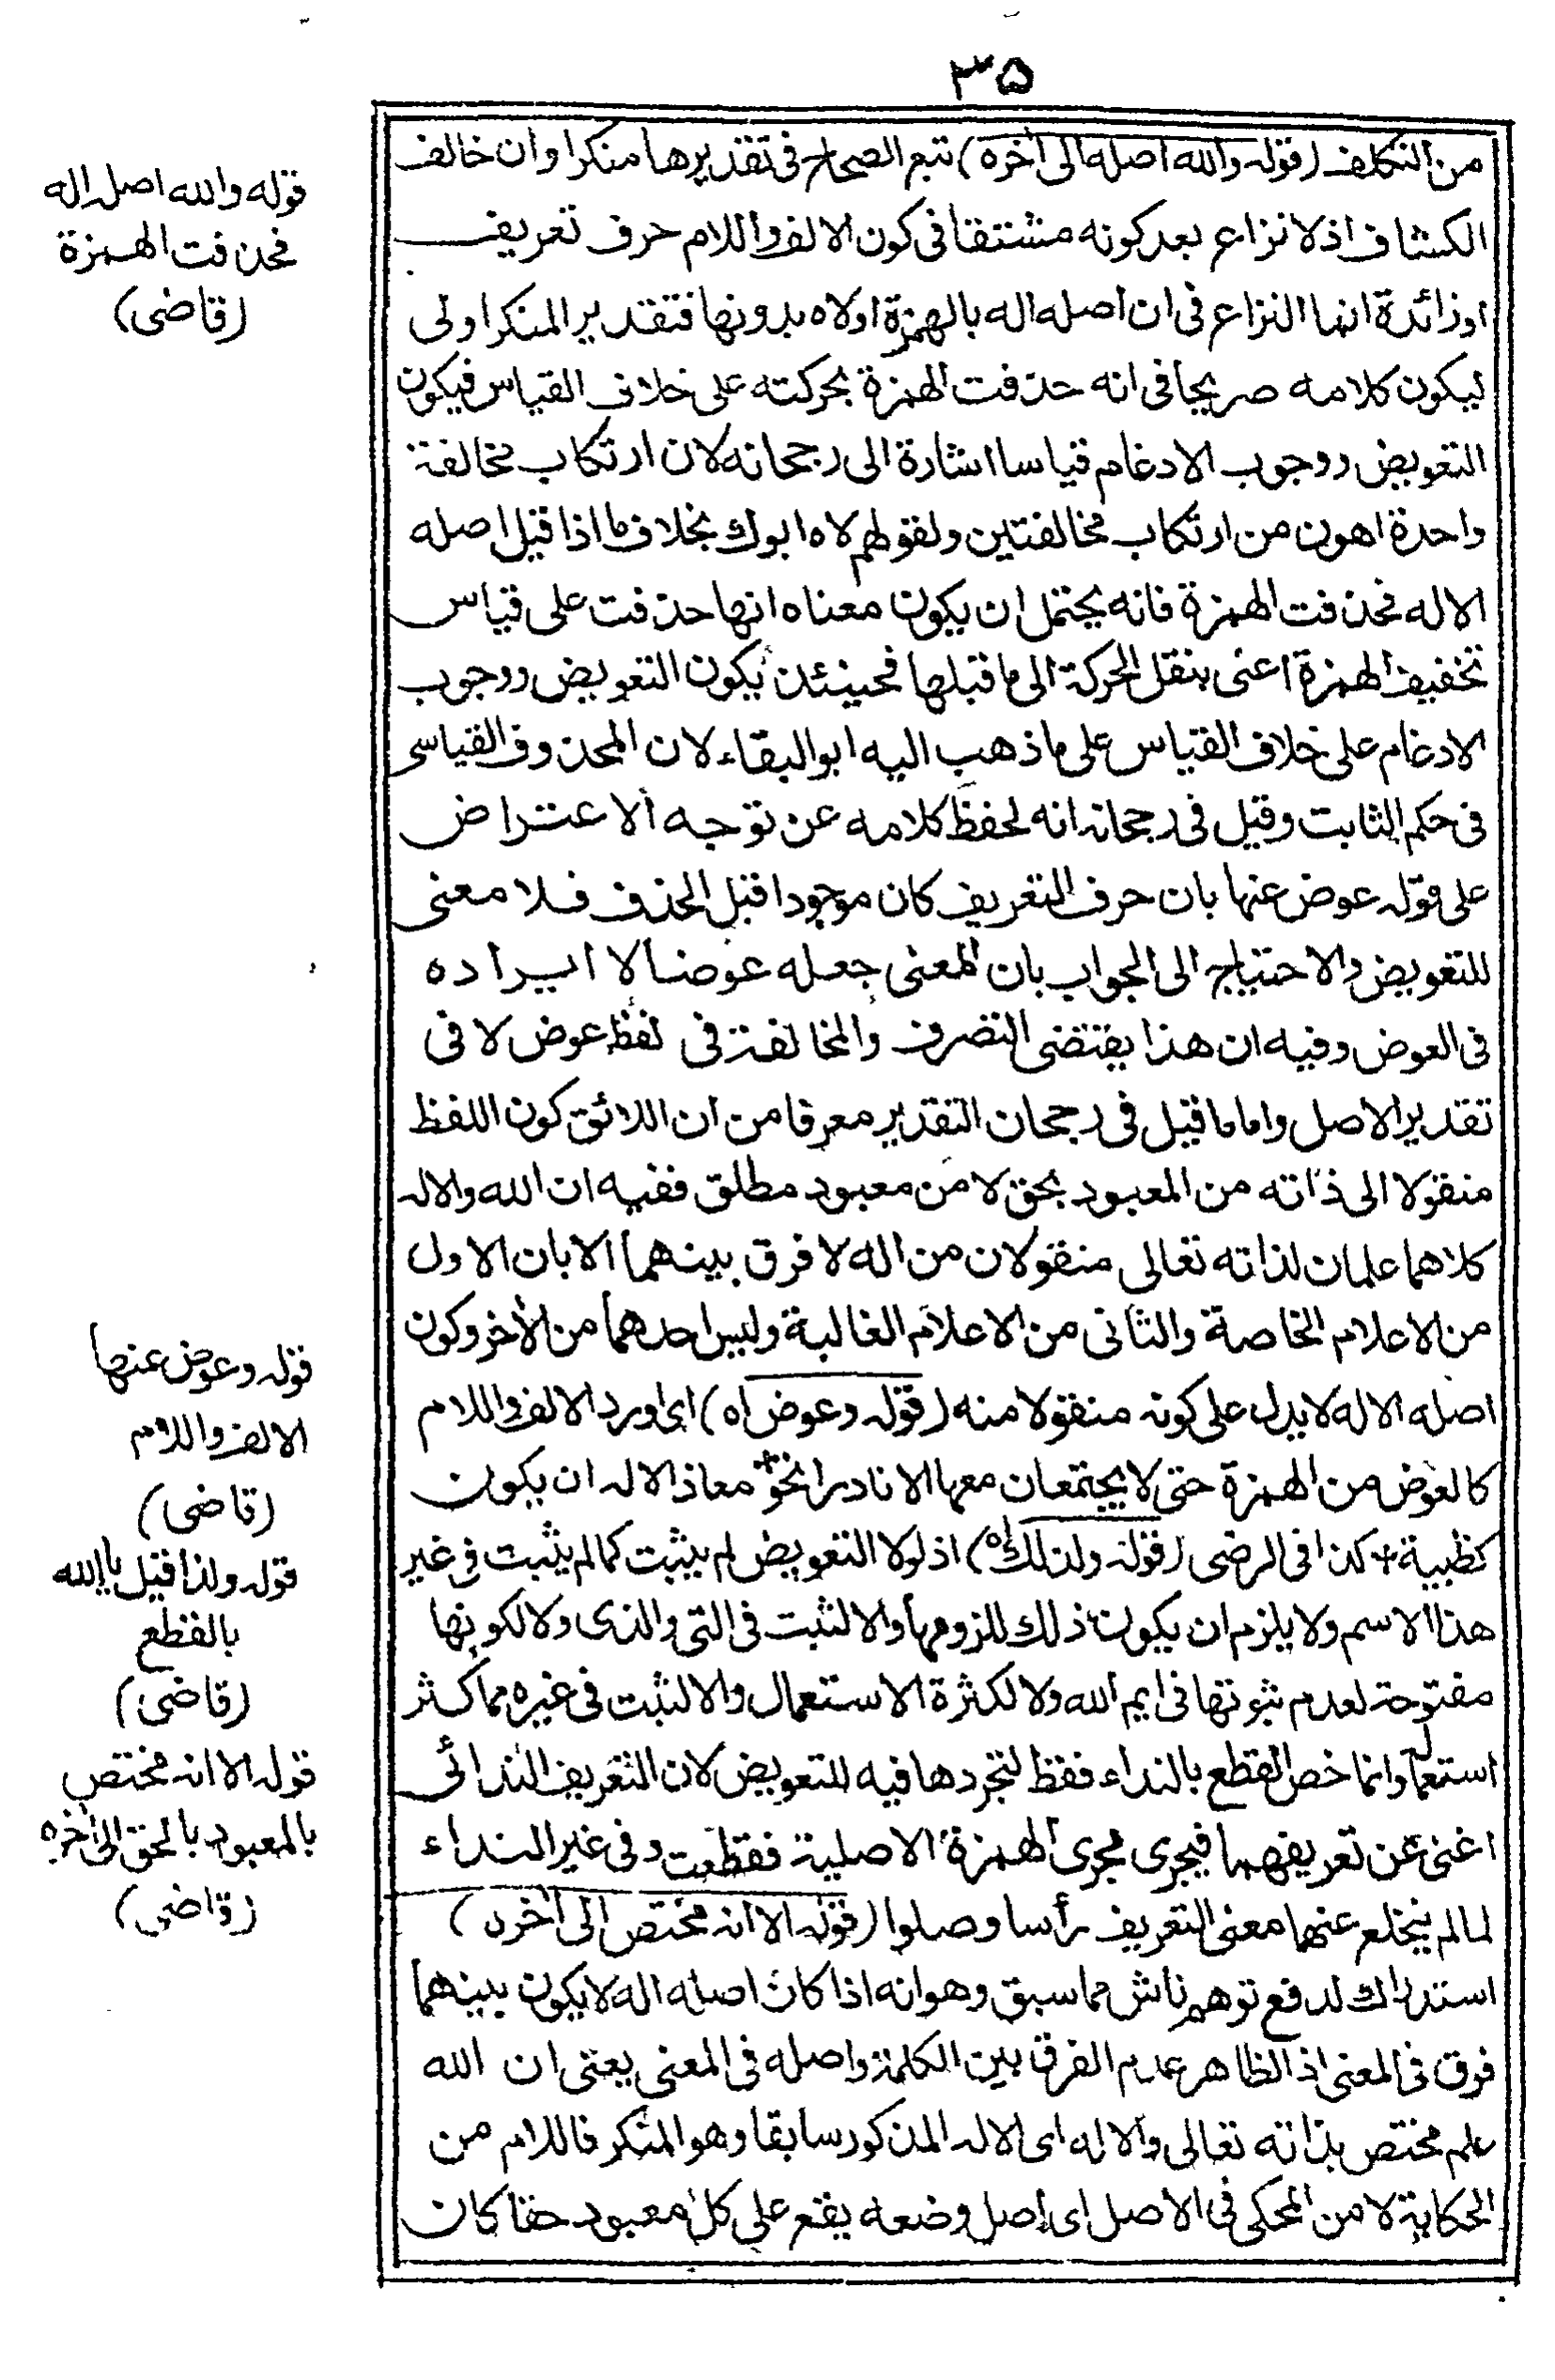 ٣٥
من التكلف (قوله والله اصله الى آخره) تبع الصحاح فى تقديرها منكرا وان خالف
الكشاف اذ لا نزاع بعد كونه مشتقا فى كون الالف واللام حرف تعريف
او زائدة انما النزاع فى ان اصله اله بالهمزة او لاه بدونها فتقدير المنكر اولى
ليكون كلامه صريحا فى انه حذفت الهمزة بحركته على خلاف القياس فيكون
التعويض ووجوب الادغام قياسا اشارة الى رجحانه لان ارتكاب مخالفة
واحدة اهون من ارتكاب مخالفتين ولقولهم لاه ابوك بخلاف ما اذا قيل اصله
الاله فحذفت الهمزة فانه يحتمل ان يكون معناه انها حذفت على قياس
تخفيف الهمزة اعنى بنقل الحركة الى ما قبلها فحينئذ يكون التعويض ووجوب
الادغام على خلاف القياس على ما ذهب اليه ابو البقاء لان المحذوف القياسى
فى حكم الثابت وقيل فى رجحانه انه لحفظ كلامه عن توجه الاعتراض
على قوله عوض عنها بان حرف التعريف كان موجودا قبل الحذف فلا معنى
للتعويض والاحتياج الى الجواب بان المعنى جعله عوضا لا ايراده
فى العوض وفيه ان هذا يقتضى التصرف والمخالفة فى لفظ عوض لا فى
تقدير الاصل واما ما قيل فى رجحان التقدير معرفا من ان اللائق كون اللفظ
منقولا الى ذاته من المعبود بحق لا من معبود مطلق ففيه ان الله والاله
كلاهما علمان لذاته تعالى منقولان من اله لا فرق بينهما الا بان الاول
من الاعلام الخاصة والثانى من الاعلام الغالبة وليس احدهما من الآخر وكون
اصله الاله لا يدل على كونه منقولا منه (قوله وعوض اه) اى اورد الالف واللام
كالعوض من الهمزة حتى لا يجتمعان معها الا نادرا نحو + معاذ الاله ان يكون
كظبية + كذا فى الرضى (قوله ولذلك اه) اذ لولا التعويض لم يثبت كما لم يثبت فى غير
هذا الاسم ولا يلزم ان يكون ذلك للزومها والا لثبت فى التى والذى ولا لكونها
مفتوحة لعدم ثبوتها فى ايم الله ولا لكثرة الاستعمال والا لثبت فى غيره مما كثر
استعماله وانما خص القطع بالنداء فقط لتجردها فيه للتعويض لان التعريف الندائى
اغنى عن تعريفهما فيجرى مجرى الهمزة الاصلية فقطعت وفى غير النداء
لما لم ينخلع عنهما معنى التعريف رأسا وصلوا (قوله الا انه مختص الى آخره)
استدراك لدفع توهم ناش مما سبق وهو انه اذا كان اصله اله لا يكون بينهما
فرق فى المعنى اذ الظاهر عدم الفرق بين الكلمة واصله فى المعنى يعنى ان الله
علم مختص بذاته تعالى والاله اى الاله المذكور سابقا وهو المنكر فاللام من
الحكاية لا من المحكى فى الاصل اى اصل وضعه يقع على كل معبود حقا كان
قوله والله اصله اله
فحذفت الهمزة
(قاضى)
قوله وعوض عنها
الالف واللام
(قاضى)
قوله ولذا قيل يا الله
بالقطع
(قاضى)
قوله الا انه مختص
بالمعبود بالحق الى آخره
(قاضى)